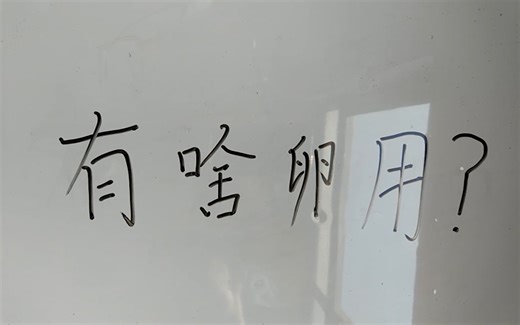 有啥卵用?